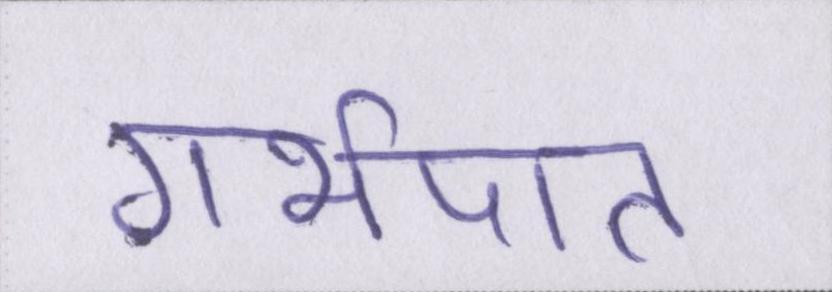 गर्भपात